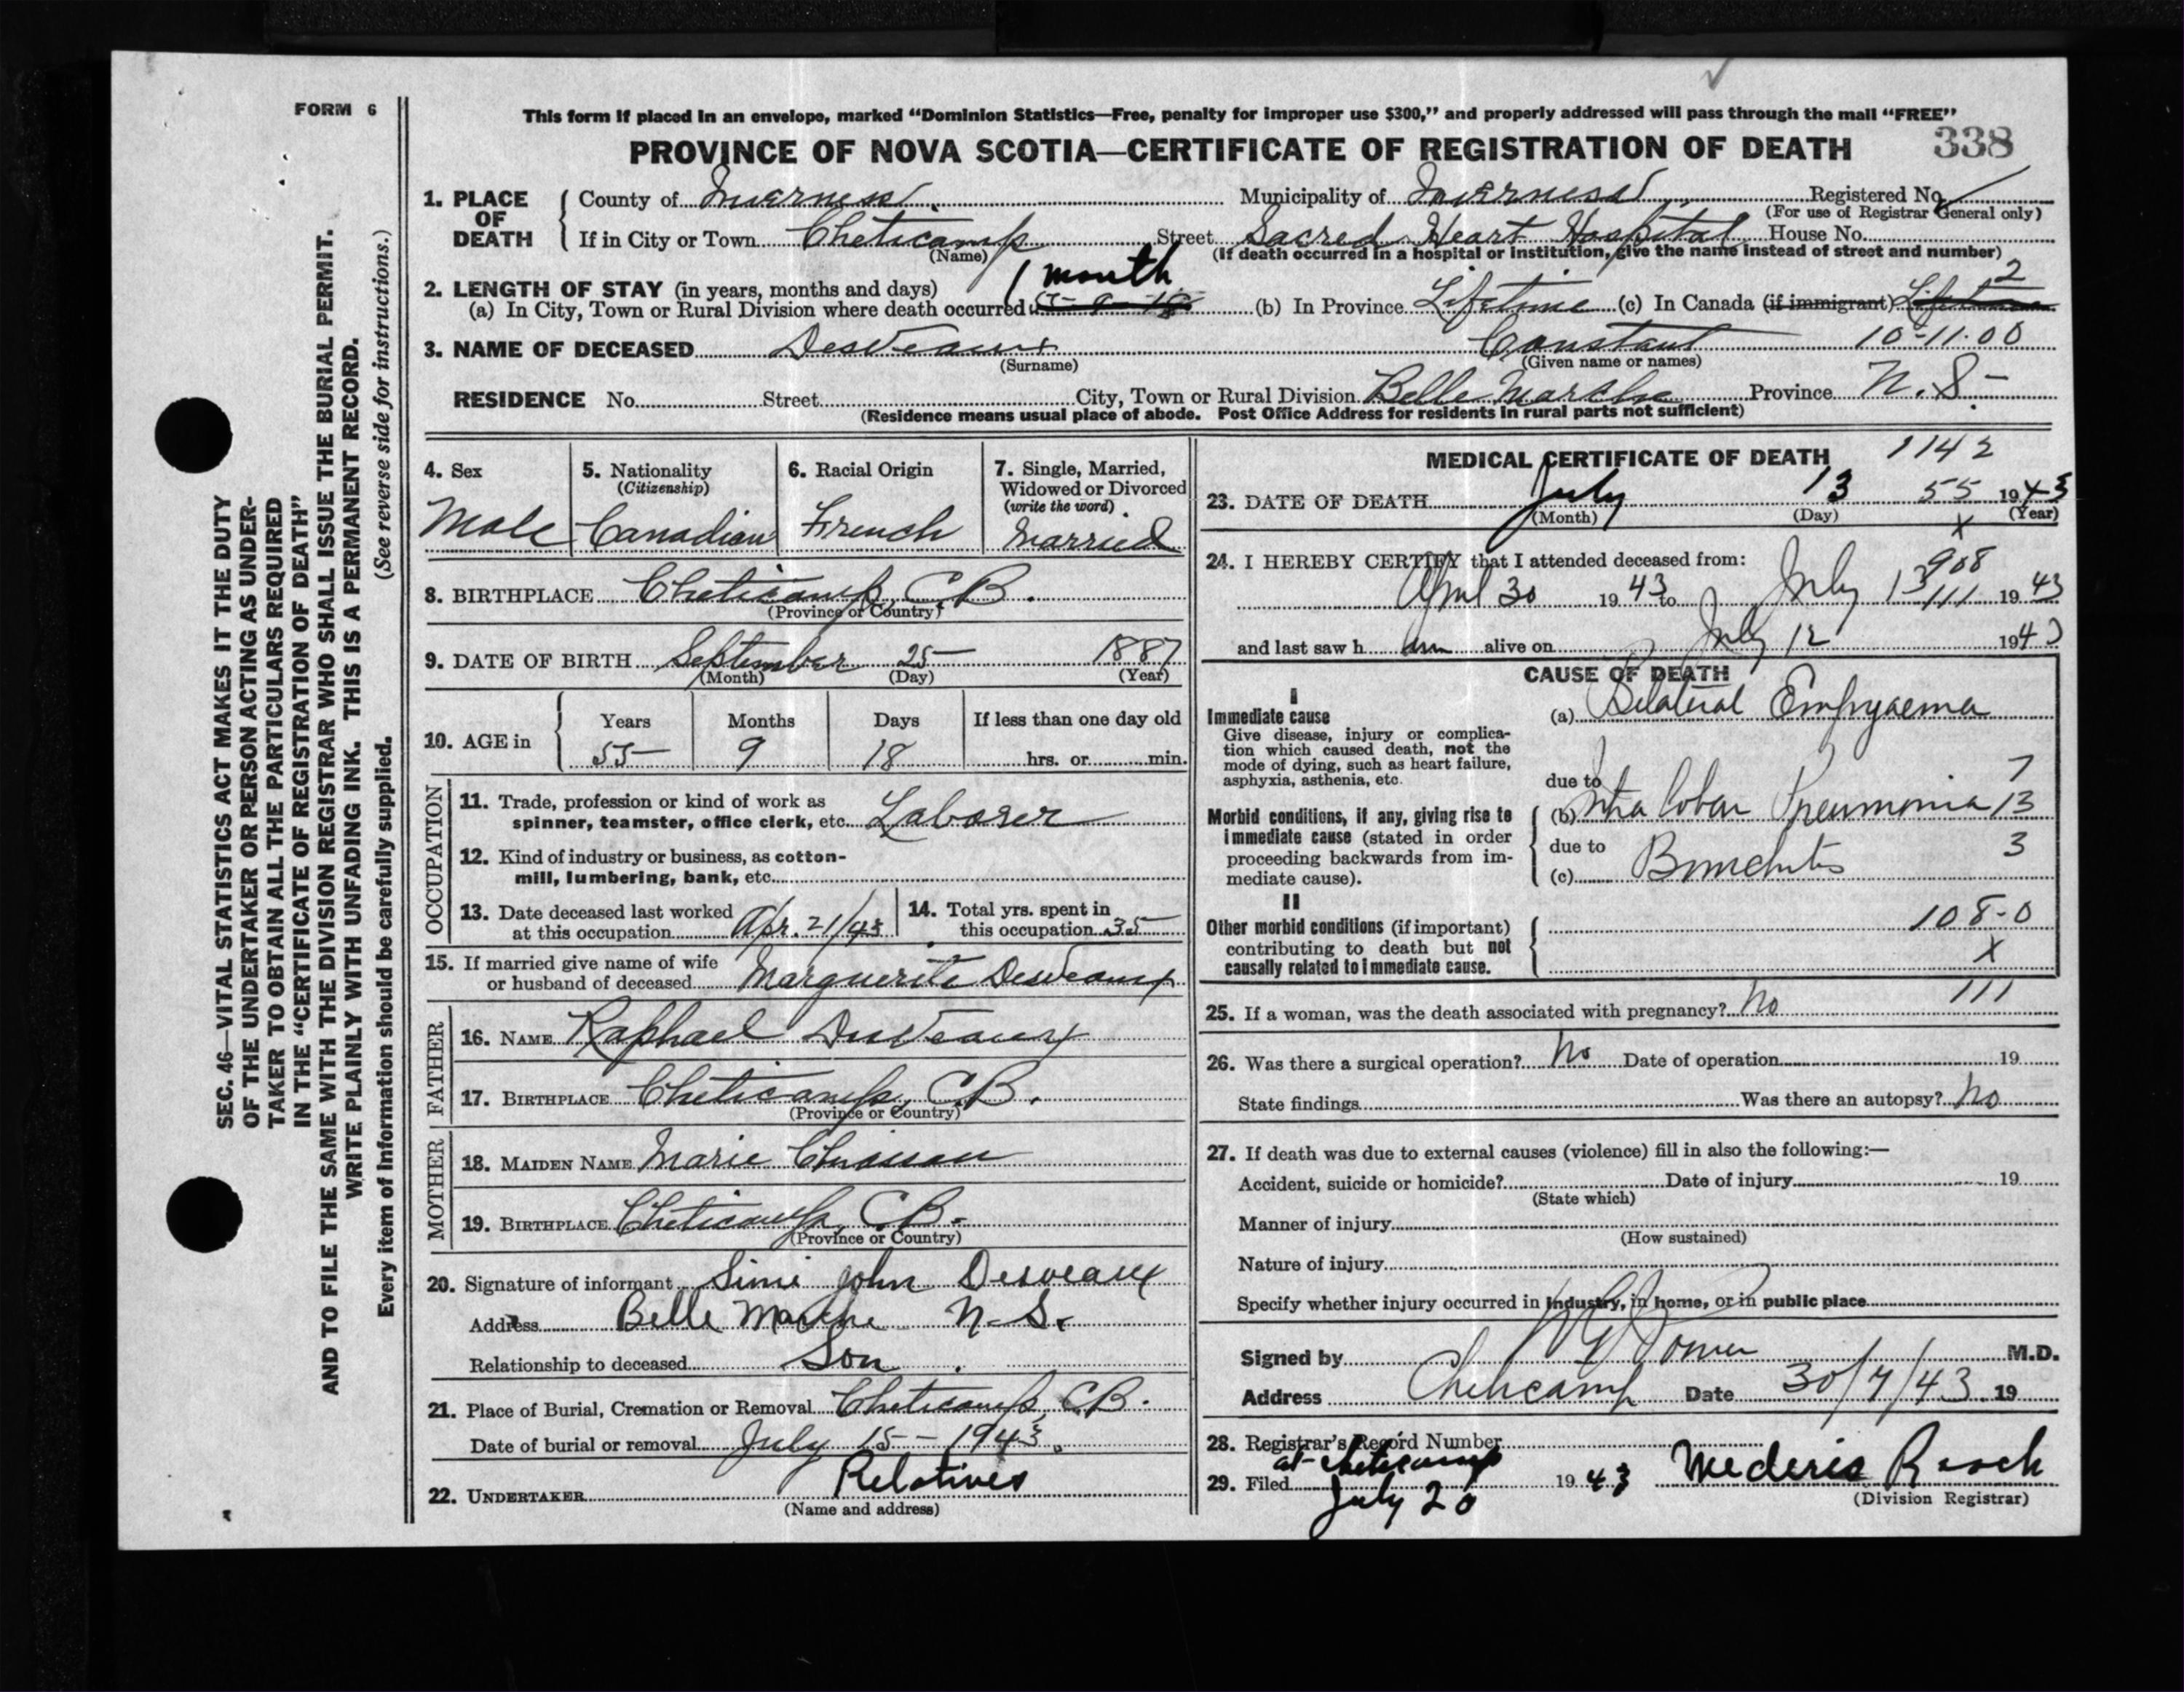 FORM 6
This form if placed in an envelope, marked "Dominion Statistics—Free, penalty for improper use $300," and properly addressed will pass through the mail "FREE"
PROVINCE OF NOVA SCOTIA—CERTIFICATE OF REGISTRATION OF DEATH 338
1. PLACE OF DEATH County of Inverness Municipality of Inverness Registered No
(For use of Registrar General only)
If in City or Town Cheticamp Street Sacred Heart Hospital House No.
(Name) (If death occurred in a hospital or institution, give the name instead of street and number)
2. LENGTH OF STAY (in years, months and days) 1 month 2
(a) In City, Town or Rural Division where death occurred (b) In Province Lifetime (c) In Canada (if immigrant) Lifetime
3. NAME OF DECEASED DesVeaux Constant 10-11.00
(Surname) (Given name or names)
RESIDENCE No. Street City, Town or Rural Division Belle Marche Province N.S-
(Residence means usual place of abode. Post Office Address for residents in rural parts not sufficient)
4. Sex 5. Nationality (Citizenship) 6. Racial Origin 7. Single, Married, Widowed or Divorced (write the word)
Male Canadian French Married
8. BIRTHPLACE Cheticamp, C.B.
(Province or Country)
9. DATE OF BIRTH September 25 1887
(Month) (Day) (Year)
10. AGE in Years Months Days If less than one day old
55 9 18 hrs. or min.
OCCUPATION
11. Trade, profession or kind of work as
spinner, teamster, office clerk, etc. Laborer
12. Kind of industry or business, as cotton-
mill, lumbering, bank, etc.
13. Date deceased last worked
at this occupation Apr. 21/43
14. Total yrs. spent in
this occupation 35
15. If married give name of wife
or husband of deceased Marguerite DesVeaux
FATHER
16. NAME Raphael DesVeaux
17. BIRTHPLACE Cheticamp, C.B.
(Province or Country)
MOTHER
18. MAIDEN NAME Marie Chiasson
19. BIRTHPLACE Cheticamp, C.B.
(Province or Country)
20. Signature of informant Simi John Desveaux
Address Belle Marche N-S.
Relationship to deceased Son
21. Place of Burial, Cremation or Removal Cheticamp, C.B.
Date of burial or removal July 15-1943.
22. UNDERTAKER Relatives
(Name and address)
MEDICAL CERTIFICATE OF DEATH 1142
23. DATE OF DEATH July 13 55 1943
(Month) (Day) (Year)
X
24. I HEREBY CERTIFY that I attended deceased from: 908
April 30 1943 to July 13 111 1943
and last saw h im alive on July 12 1943
CAUSE OF DEATH
I
Immediate cause (a) Bilateral Empyaema
Give disease, injury or complica-
tion which caused death, not the
mode of dying, such as heart failure,
asphyxia, asthenia, etc.
due to 7
Morbid conditions, if any, giving rise to
immediate cause (stated in order
proceeding backwards from im-
mediate cause).
(b) Intra lobar Pneumonia 13
due to 3
(c) Bronchitis
II
Other morbid conditions (if important)
contributing to death but not
causally related to immediate cause.
108-0
X
111
25. If a woman, was the death associated with pregnancy? No
26. Was there a surgical operation? No Date of operation 19
State findings Was there an autopsy? No
27. If death was due to external causes (violence) fill in also the following:—
Accident, suicide or homicide? Date of injury 19
(State which)
Manner of injury
(How sustained)
Nature of injury
Specify whether injury occurred in industry, in home, or in public place
Signed by M.D.
Address Cheticamp Date 30/7/43 19
28. Registrar's Record Number
at Cheticamp
29. Filed July 20 1943 Mederic Roach
(Division Registrar)
SEC. 46—VITAL STATISTICS ACT MAKES IT THE DUTY
OF THE UNDERTAKER OR PERSON ACTING AS UNDER-
TAKER TO OBTAIN ALL THE PARTICULARS REQUIRED
IN THE "CERTIFICATE OF REGISTRATION OF DEATH"
AND TO FILE THE SAME WITH THE DIVISION REGISTRAR WHO SHALL ISSUE THE BURIAL PERMIT.
WRITE PLAINLY WITH UNFADING INK. THIS IS A PERMANENT RECORD.
Every item of Information should be carefully supplied. (See reverse side for instructions.)